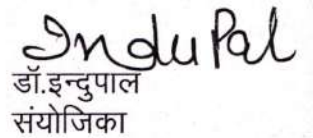 Indu Pal
डॉ.इन्दुपाल
संयोजिका